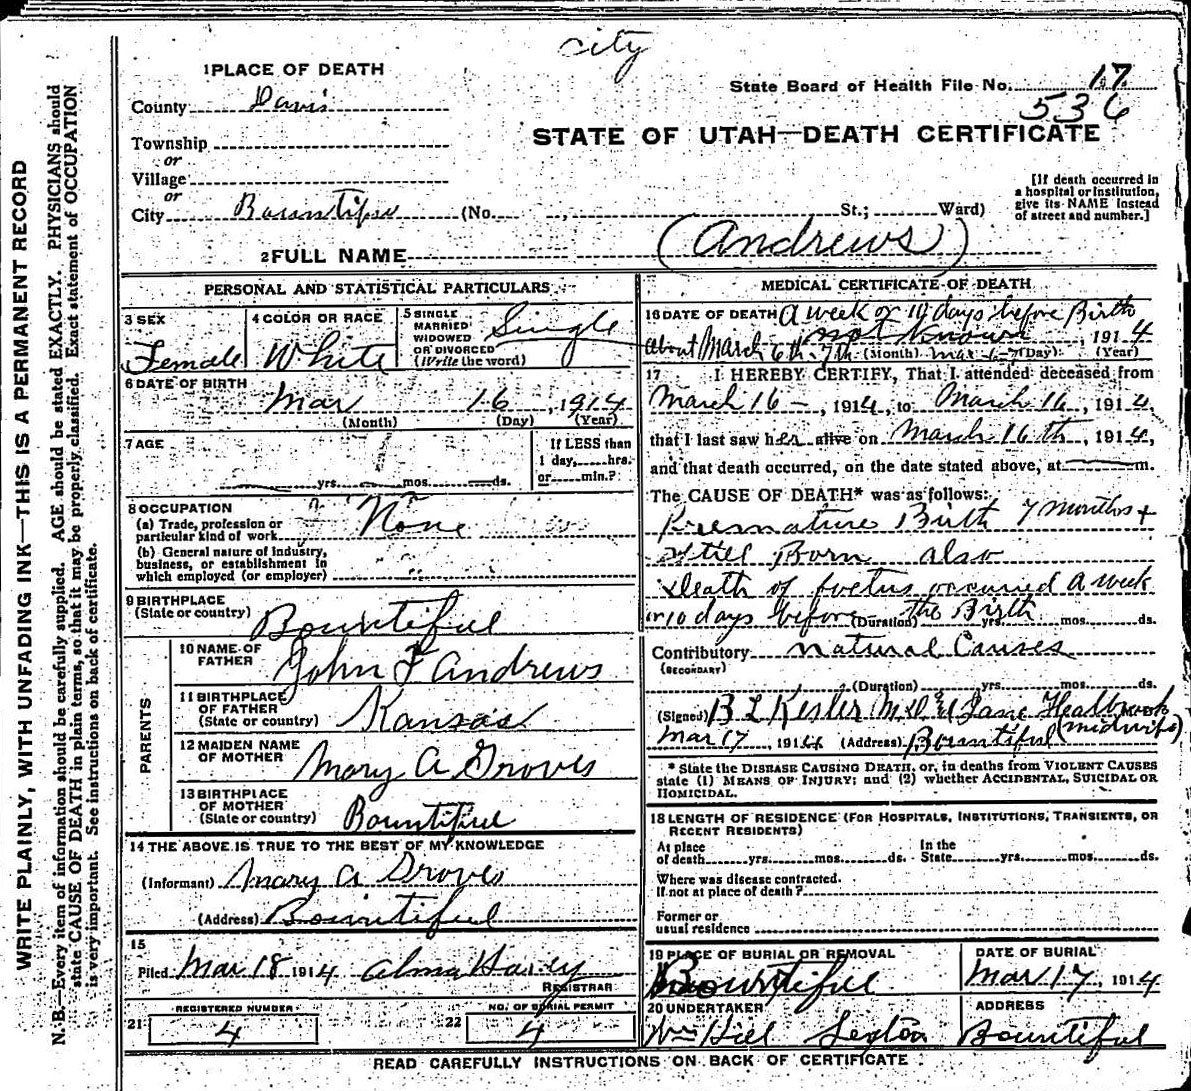 city
1 PLACE OF DEATH
County Davis
Township
or
Village
or
City Bountiful (No. , St.; Ward)
State Board of Health File No. 17
536
STATE OF UTAH—DEATH CERTIFICATE
[If death occurred in
a hospital or institution,
give its NAME instead
of street and number.]
2 FULL NAME (Andrews)
PERSONAL AND STATISTICAL PARTICULARS
3 SEX
Female
4 COLOR OR RACE
White
5 SINGLE
MARRIED
WIDOWED
OR DIVORCED
(Write the word)
Single
6 DATE OF BIRTH
Mar 16, 1914
(Month) (Day) (Year)
7 AGE
yrs. mos. ds.
If LESS than
1 day, hrs.
or min.?
8 OCCUPATION
(a) Trade, profession or
particular kind of work None
(b) General nature of industry,
business, or establishment in
which employed (or employer)
9 BIRTHPLACE
(State or country) Bountiful
PARENTS
10 NAME OF
FATHER John F Andrews
11 BIRTHPLACE
OF FATHER
(State or country) Kansas
12 MAIDEN NAME
OF MOTHER Mary A Groves
13 BIRTHPLACE
OF MOTHER
(State or country) Bountiful
14 THE ABOVE IS TRUE TO THE BEST OF MY KNOWLEDGE
(Informant) Mary A Groves
(Address) Bountiful
15
Filed Mar 18 1914 Alma
REGISTRAR
REGISTERED NUMBER
21 4
NO. OF BURIAL PERMIT
22 4
MEDICAL CERTIFICATE OF DEATH
16 DATE OF DEATH A week or 10 days before Birth
not known, 1914
about March 6th-7th (Month) Mar 6-7 (Day) (Year)
17 I HEREBY CERTIFY, That I attended deceased from
March 16 - , 1914, to March 16, 1914,
that I last saw her alive on March 16th, 1914,
and that death occurred, on the date stated above, at m.
The CAUSE OF DEATH* was as follows:
Premature Birth 7 months +
Still Born also
death of foetus occurred a week
or 10 days before the Birth
(Duration) yrs. mos. ds.
Contributory Natural Causes
(SECONDARY)
(Duration) yrs. mos. ds.
(Signed) B L Kesler M.D. Jane
Mar 17, 1914 (Address) Bountiful (midwife)
* State the DISEASE CAUSING DEATH, or, in deaths from VIOLENT CAUSES
state (1) MEANS OF INJURY; and (2) whether ACCIDENTAL, SUICIDAL OR
HOMICIDAL.
18 LENGTH OF RESIDENCE (FOR HOSPITALS, INSTITUTIONS, TRANSIENTS, OR
RECENT RESIDENTS)
At place
of death yrs. mos. ds.
In the
State yrs. mos. ds.
Where was disease contracted.
If not at place of death?
Former or
usual residence
19 PLACE OF BURIAL OR REMOVAL
Bountiful
DATE OF BURIAL
Mar 17, 1914
20 UNDERTAKER
Wm Hill Sexton
ADDRESS
Bountiful
READ CAREFULLY INSTRUCTIONS ON BACK OF CERTIFICATE
WRITE PLAINLY, WITH UNFADING INK—THIS IS A PERMANENT RECORD
N. B.—Every item of information should be carefully supplied. AGE should be stated EXACTLY. PHYSICIANS should
state CAUSE OF DEATH in plain terms, so that it may be properly classified. Exact statement of OCCUPATION
is very important. See instructions on back of certificate.